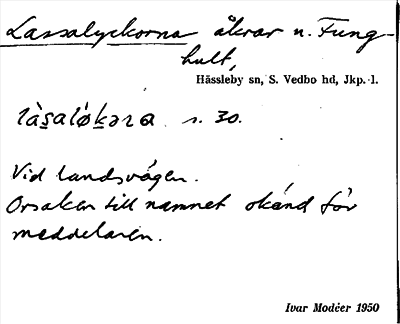 Lassalyckorna åkrar n. Fung-
hult,
Hässleby sn, S. Vedbo hd, Jkp. l.
làs̱alø̀ḵəra s. 30.
Vid landsvägen.
Orsaken till namnet okänd för
meddelaren.
Ivar Modéer 1950